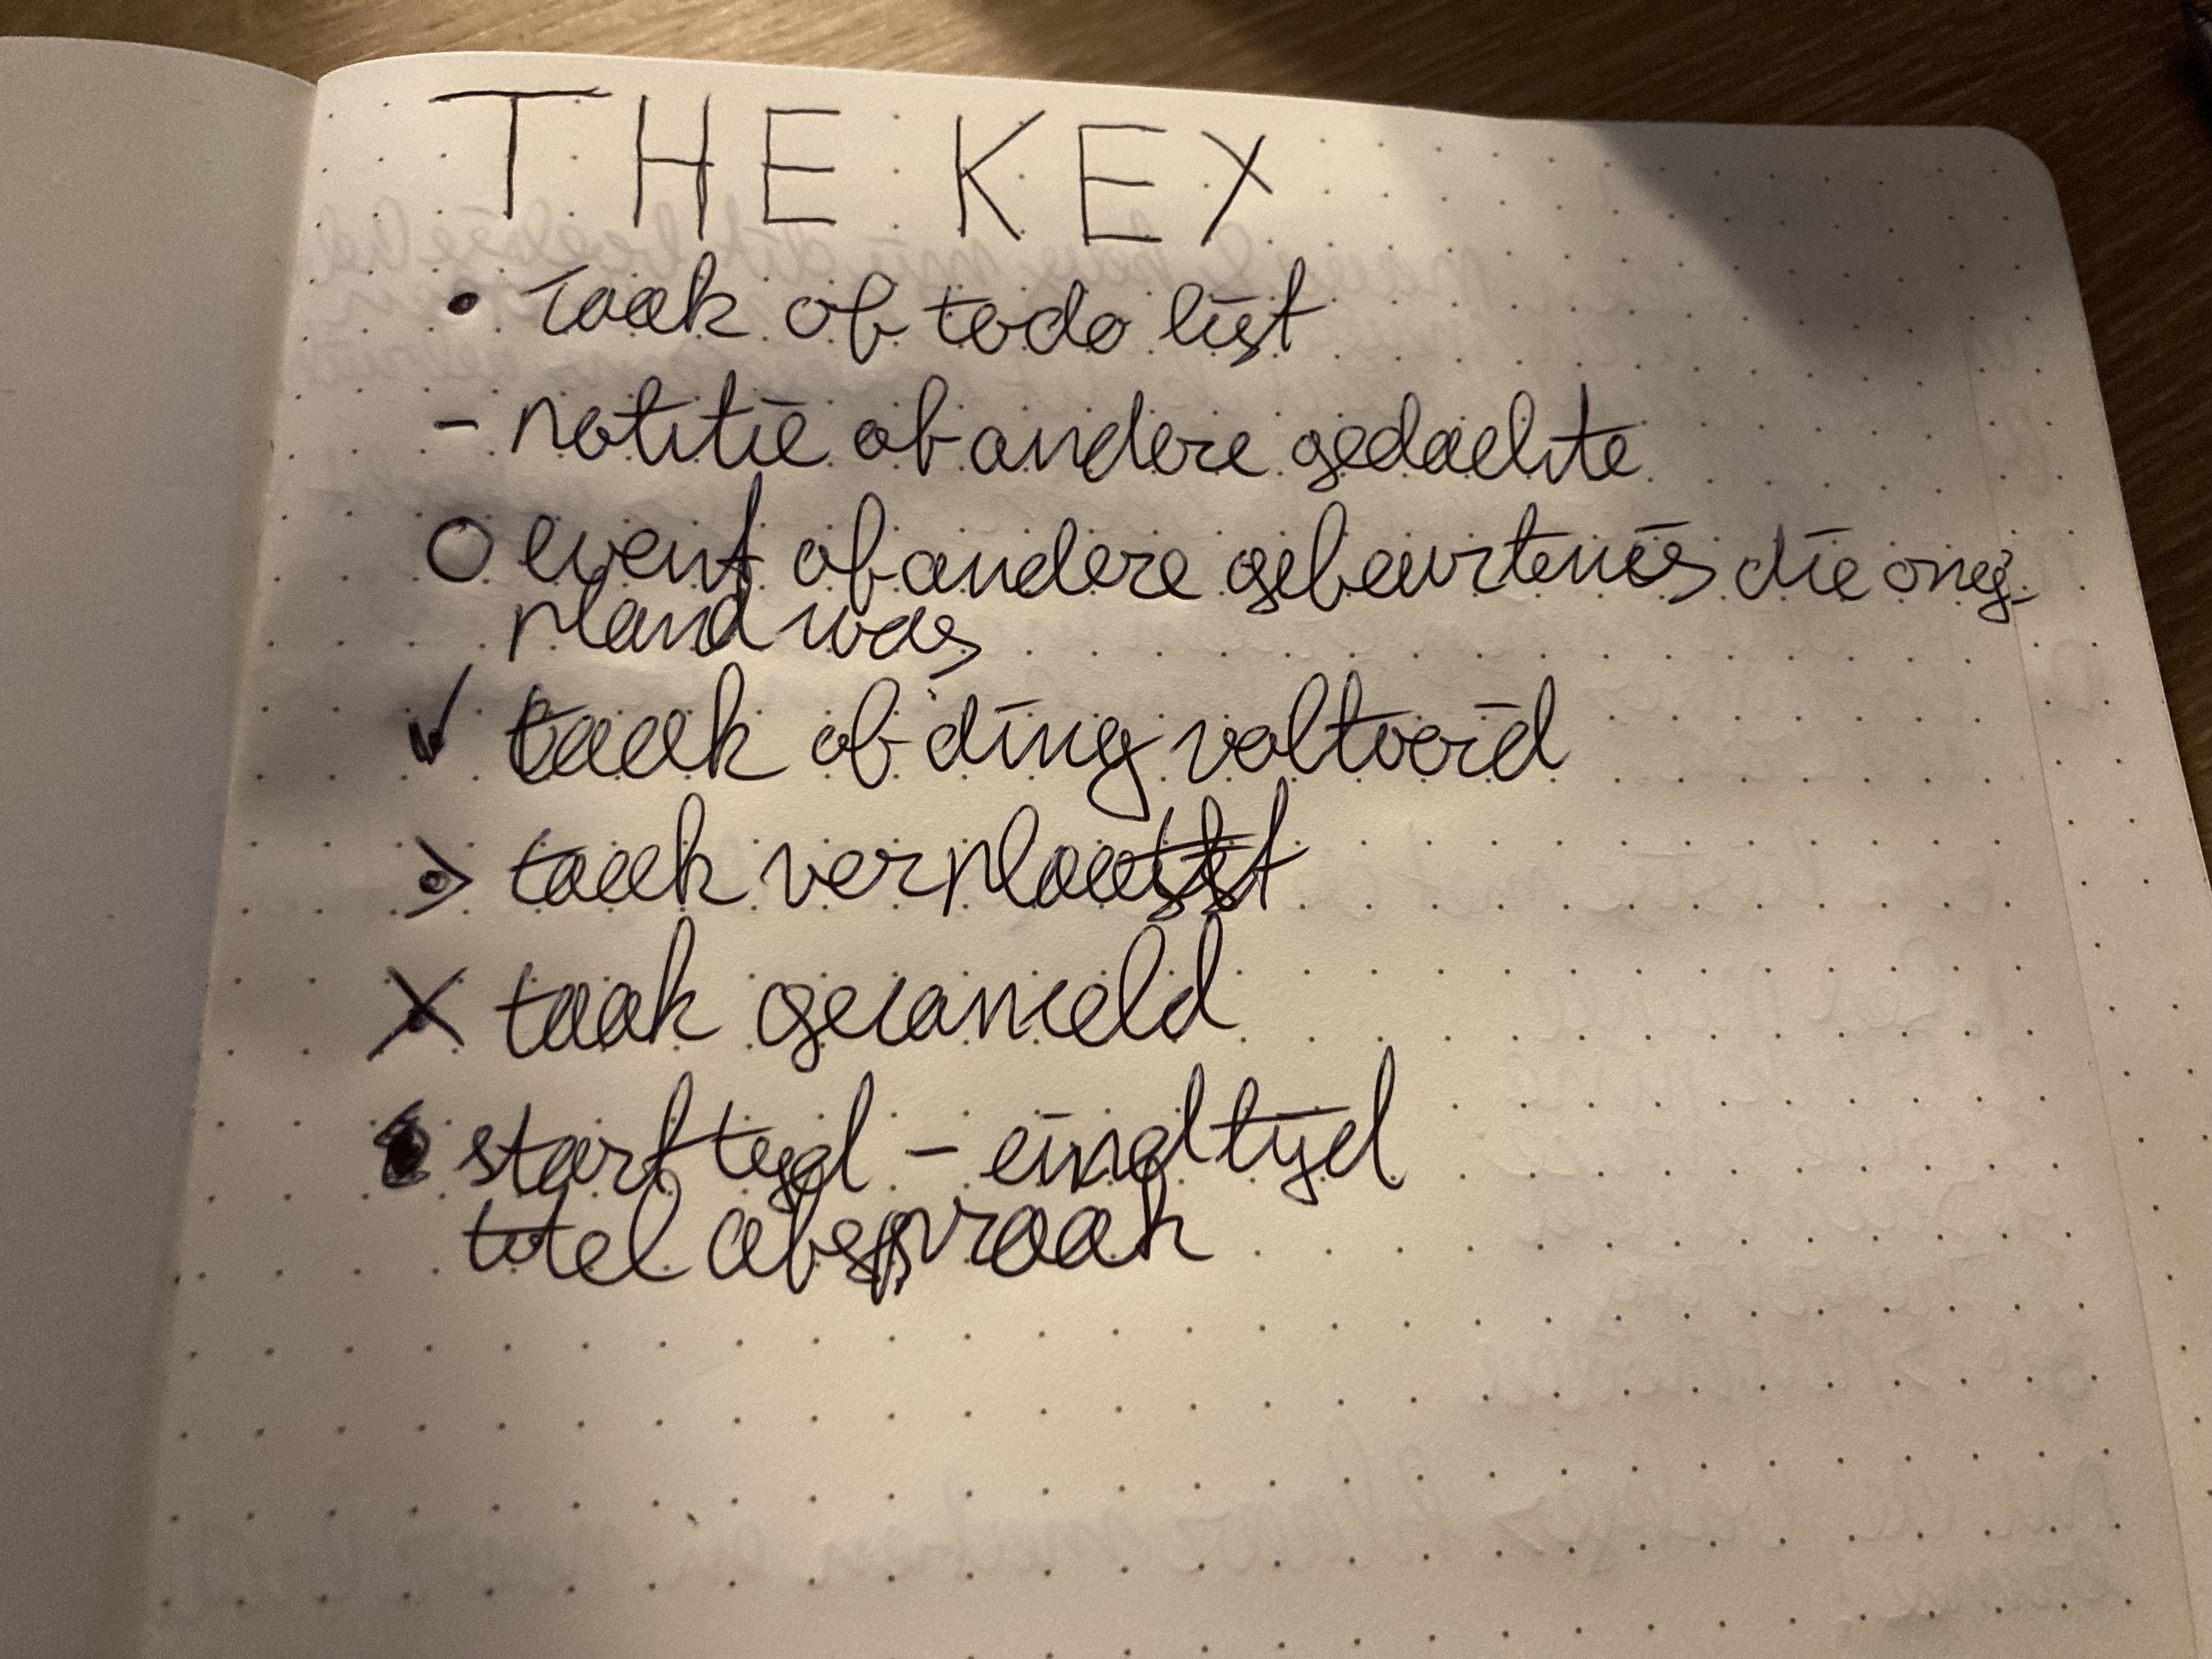 THE KEY
• Taak of todo list
- notitie of andere gedachte
O event of andere gebeurtenis die ong-
pland was
✓ taak of ding voltooid
> taak verplaatst
X taak gecanceld
• start tijd - eindtijd
titel afspraak